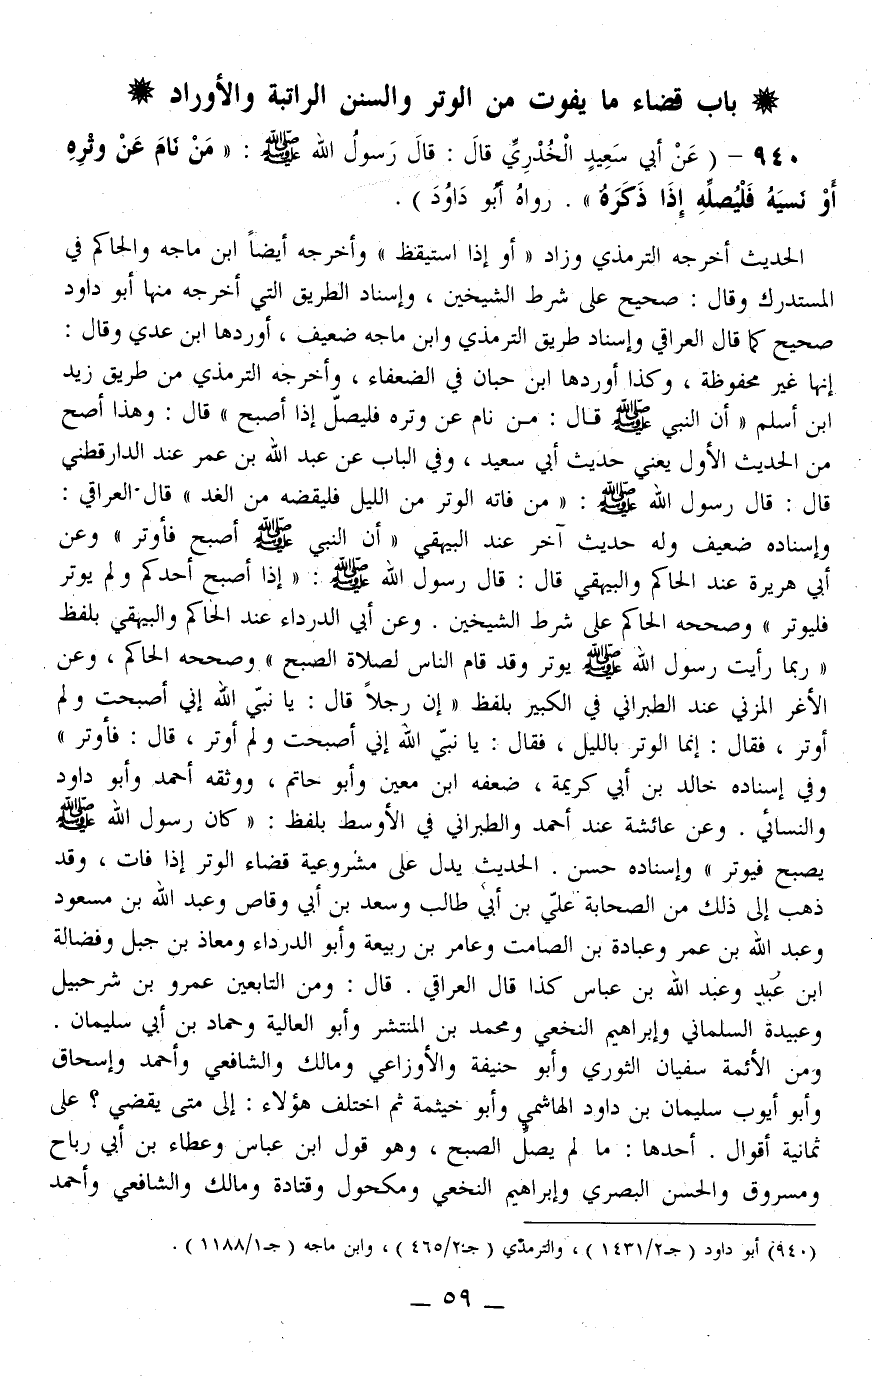 ❋ باب قضاء ما يفوت من الوتر والسنن الراتبة والأوراد ❋
٩٤٠ – ( عَنْ أبي سَعِيدٍ الْخُدْرِيِّ قالَ : قالَ رَسولُ الله ﷺ : « مَنْ نَامَ عَنْ وِتْرِهِ
أَوْ نَسيَهُ فَلْيُصلِّهِ إِذَا ذَكَرَهُ » . رواهُ أَبُو دَاوُدَ ) .
الحديث أخرجه الترمذي وزاد « أو إذا استيقظ » وأخرجه أيضاً ابن ماجه والحاكم في
المستدرك وقال : صحيح على شرط الشيخين ، وإسناد الطريق التي أخرجه منها أبو داود
صحيح كما قال العراقي وإسناد طريق الترمذي وابن ماجه ضعيف ، أوردها ابن عدي وقال :
إنها غير محفوظة ، وكذا أوردها ابن حبان في الضعفاء ، وأخرجه الترمذي من طريق زيد
ابن أسلم « أن النبي ﷺ قـال : مـن نام عن وتره فليصلّ إذا أصبح » قال : وهذا أصح
من الحديث الأول يعني حديث أبي سعيد ، وفي الباب عن عبد الله بن عمر عند الدارقطني
قال : قال رسول الله ﷺ : « من فاته الوتر من الليل فليقضه من الغد » قال العراقي :
وإسناده ضعيف وله حديث آخر عند البيهقي « أن النبي ﷺ أصبح فأوتر » وعن
أبي هريرة عند الحاكم والبيهقي قال : قال رسول الله ﷺ : « إذا أصبح أحدكم ولم يوتر
فليوتر » وصححه الحاكم على شرط الشيخين . وعن أبي الدرداء عند الحاكم والبيهقي بلفظ
« ربما رأيت رسول الله ﷺ يوتر وقد قام الناس لصلاة الصبح » وصححه الحاكم ، وعن
الأغر المزني عند الطبراني في الكبير بلفظ « إن رجلاً قال : يا نبيّ الله إني أصبحت ولم
أوتر ، فقال : إنما الوتر بالليل ، فقال : يا نبيّ الله إني أصبحت ولم أوتر ، قال : فأوتر »
وفي إسناده خالد بن أبي كريمة ، ضعفه ابن معين وأبو حاتم ، ووثقه أحمد وأبو داود
والنسائي . وعن عائشة عند أحمد والطبراني في الأوسط بلفظ : « كان رسول الله ﷺ
يصبح فيوتر » وإسناده حسن . الحديث يدل على مشروعية قضاء الوتر إذا فات ، وقد
ذهب إلى ذلك من الصحابة عليّ بن أبي طالب وسعد بن أبي وقاص وعبد الله بن مسعود
وعبد الله بن عمر وعبادة بن الصامت وعامر بن ربيعة وأبو الدرداء ومعاذ بن جبل وفضالة
ابن عُبيدٍ وعبد الله بن عباس كذا قال العراقي . قال : ومن التابعين عمرو بن شرحبيل
وعبيدة السلماني وإبراهيم النخعي ومحمد بن المنتشر وأبو العالية وحماد بن أبي سليمان .
ومن الأئمة سفيان الثوري وأبو حنيفة والأوزاعي ومالك والشافعي وأحمد وإسحاق
وأبو أيوب سليمان بن داود الهاشمي وأبو خيثمة ثم اختلف هؤلاء : إلى متى يقضي ؟ على
ثمانية أقوال . أحدها : ما لم يصلِّ الصبح ، وهو قول ابن عباس وعطاء بن أبي رباح
ومسروق والحسن البصري وإبراهيم النخعي ومكحول وقتادة ومالك والشافعي وأحمد
(٩٤٠) أبو داود ( جـ٢/١٤٣١ ) ، والترمذي ( جـ٢/٤٦٥ ) ، وابن ماجه ( جـ١/١١٨٨ ) .
ــ ٥٩ ــ